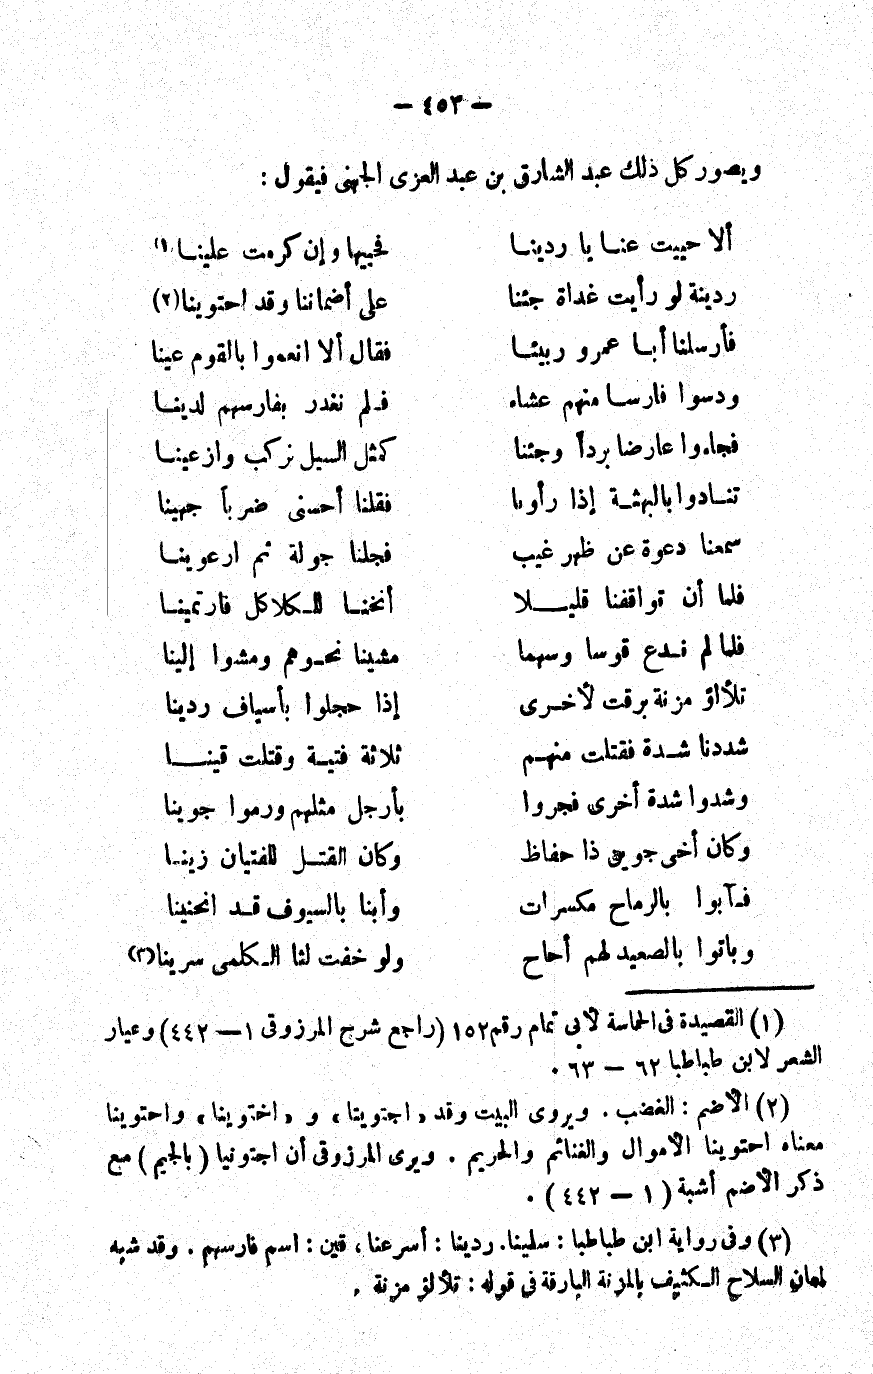 — ٤٥٣ —
ويصور كل ذلك عبد الشارق بن عبد العزى الجهنى فيقول :
ألا حييت عنـا يا ردينـا فحييها وإن كرمت علينـا (١)
ردينة لو رأيت غداة جئنا على أضماتنا وقد احتوينا (٢)
فأرسلنا أبـا عمرو ربيئـا فقال ألا انعموا بالقوم عينا
ودسوا فارسـا منهم عشاء فـلم نغدر بفارسهم لدينـا
فجاءوا عارضا برداً وجئنا كمثل السيل نركب وازعينـا
تنـادوا يالبهثـة إذا رأونا فقلنا أحسنى ضرباً جهينا
سمعنا دعوة عن ظهر غيب فجلنا جولة ثم ارعوينـا
فلما أن تواقفنا قليـلا أنخنـا للـكلاكل فارتمينـا
فلما لم نـدع قوسا وسهما مشينا نحـوهم ومشوا إلينا
تلألؤ مزنة برقت لأخـرى إذا حجلوا بأسياف ردينا
شددنا شـدة فقتلت منهـم ثلاثة فتيـة وقتلت قينـا
وشدوا شدة أخرى فجروا بأرجل مثلهم ورموا جوينا
وكان أخى جوين ذا حفاظ وكان القتـل للفتيان زينـا
فـآبوا بالرماح مكسرات وأبنا بالسيوف قـد انحنينا
وباتوا بالصعيد لهم أحاح ولو خفت لنا الـكلمى سرينا (٣)
(١) القصيدة فى الحماسة لأبى تمام رقم ١٥٢ (راجع شرح المرزوقى ١ — ٤٤٢) وعيار
الشعر لابن طباطبا ٦٢ — ٦٣ .
(٢) الأضم : الغضب . ويروى البيت وقد « اجتوينا » و « اختوينا » واحتوينا
معناه احتوينا الأموال والغنائم والحريم . ويرى المرزوقى أن اجتونيا ( بالجيم ) مع
ذكر الأضم أشبة ( ١ — ٤٤٢ ) .
(٣) وفى رواية ابن طباطبا : سلينا. ردينا : أسرعنا ، قين : اسم فارسهم . وقد شبه
لمعان السلاح الـكثيف بالمزنة البارقة في قوله : تلألؤ مزنة .